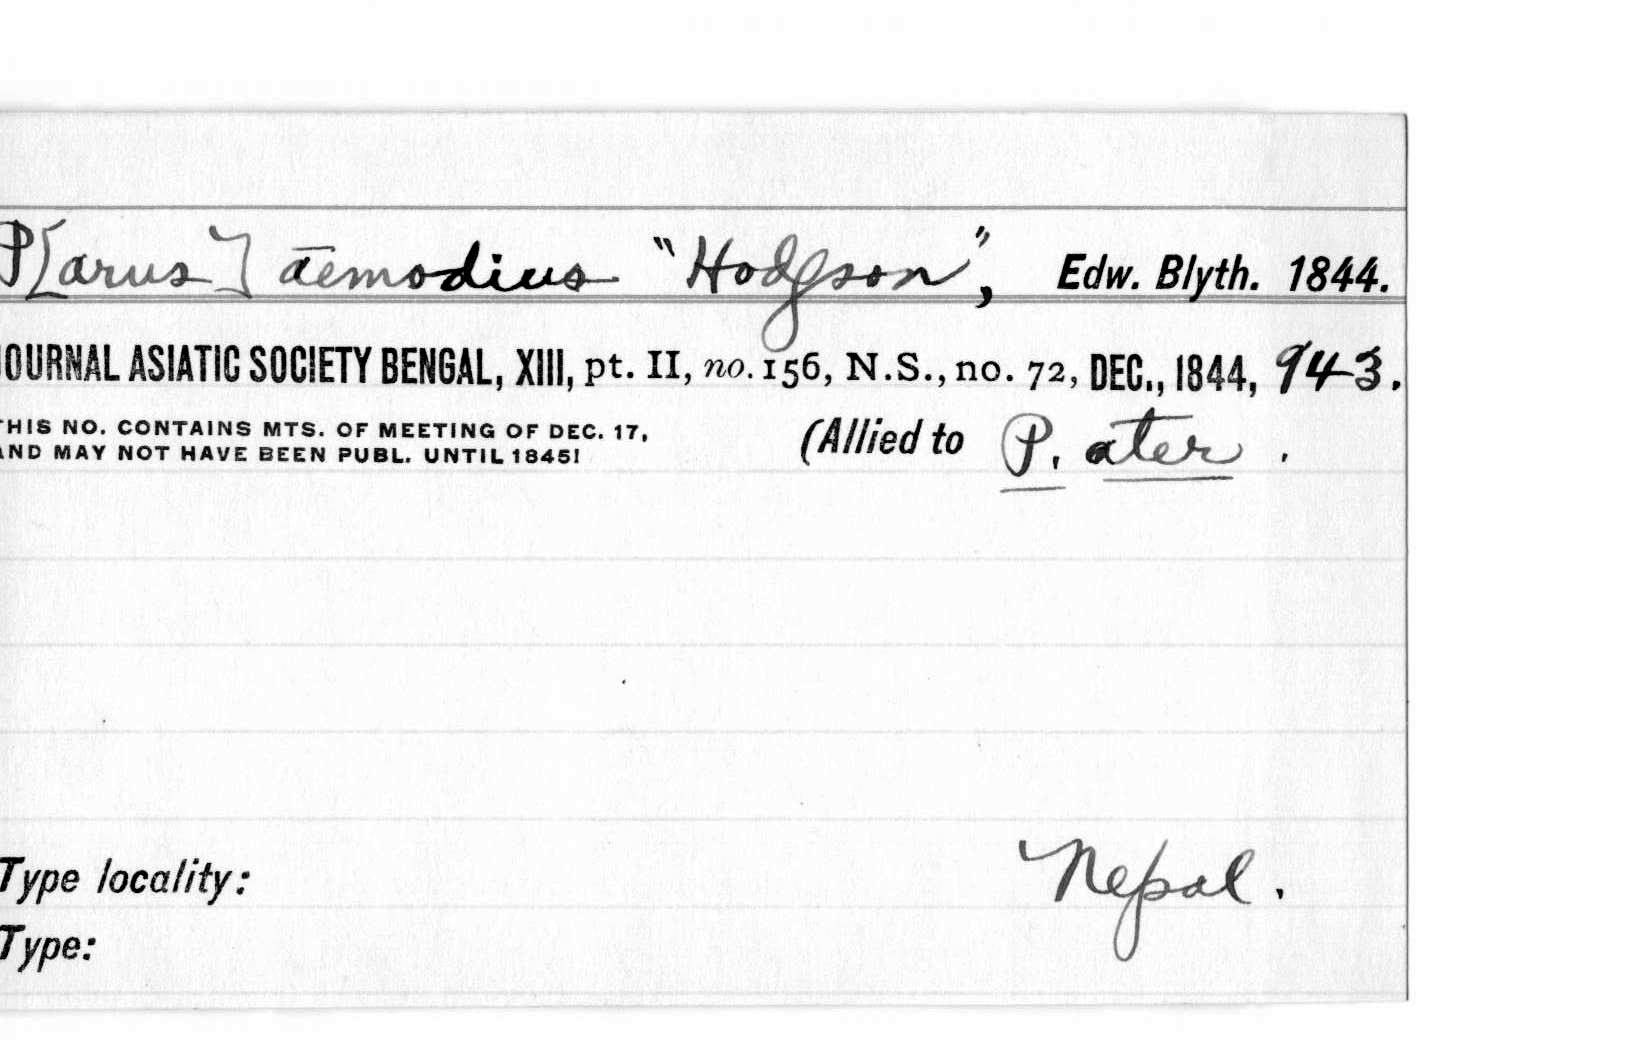 P[arus] aemodius "Hodgson", Edw. Blyth. 1844.
JOURNAL ASIATIC SOCIETY BENGAL, XIII, pt. II, no. 156, N.S., no. 72, DEC., 1844, 943.
THIS NO. CONTAINS MTS. OF MEETING OF DEC. 17,
AND MAY NOT HAVE BEEN PUBL. UNTIL 1845!
(Allied to P. ater.
Type locality: Nepal.
Type: